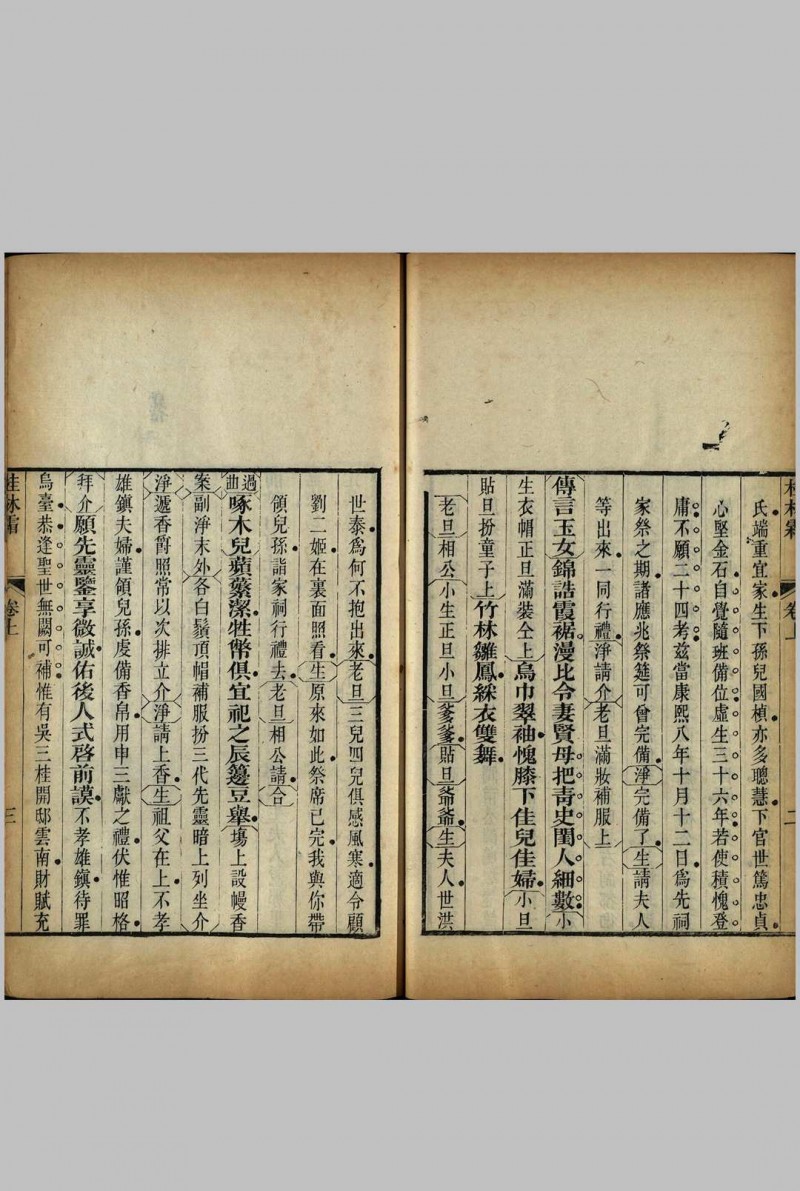 桂林霜 卷上 二
氏端重宜家生下孫兒國楨亦多聰慧下官世篤忠貞
心堅金石自覺隨班備位虛生三十六年若使積愧登
庸不願二十四考茲當康熙八年十月十二日爲先祠
家祭之期諸應兆祭筵可曾完備淨完備了生請夫人
等出來一同行禮淨請介老旦滿妝補服上
傳言玉女錦誥霞裾漫比令妻賢母把青史閨人細數小
生衣帽正旦滿裝仝上烏巾翠袖愧膝下佳兒佳婦小旦
貼旦扮童子上竹林雛鳳綵衣雙舞
老旦相公小生正旦小旦爹爹貼旦爺爺生夫人世洪
世泰爲何不抱出來老旦三兒四兒俱感風寒適令顧
劉二姬在裏面照看生原來如此祭席已完我與你帶
領兒孫詣家祠行禮去老旦相公請合
過曲啄木兒蘋蘩潔牲幣俱宜祀之辰籩豆舉塲上設幔香
案副淨末外各白鬚頂帽補服扮三代先靈暗上列坐介
淨遞香爵照常以次排立介淨請上香生祖父在上不孝
雄鎮夫婦謹領兒孫虔備香帛用申三獻之禮伏惟昭格
拜介願先靈鑒享微誠佑後人式啓前謨不孝雄鎮待罪
烏臺恭逢聖世無闕可補惟有吳三桂開邸雲南財賦充
桂林霜 卷上 三